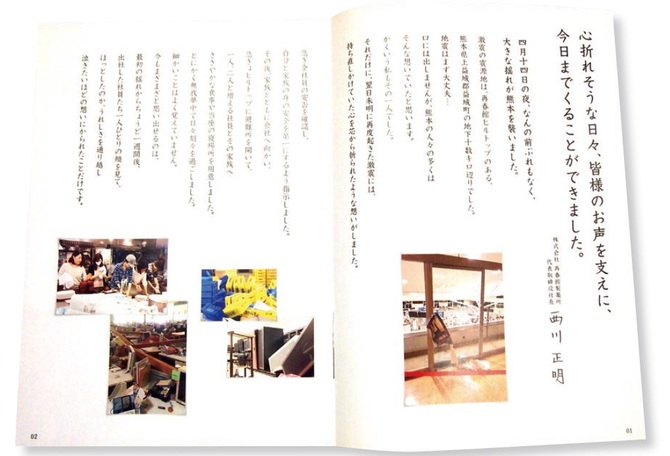 心折れそうな日々、皆様のお声を支えに、
今日までくることができました。
株式会社 再春館製薬所
代表取締役社長 西川 正明
四月十四日の夜、なんの前ぶれもなく、
大きな揺れが熊本を襲いました。
激震の震源地は、再春館ヒルトップのある、
熊本県上益城郡益城町の地下十数キロ辺りでした。
地震はまず大丈夫…
口には出しませんが、熊本の人々の多くは
そんな想いでいたと思います。
かくいう私もその一人でした。
それだけに、翌日未明に再度起きた激震には、
持ち直しかけていた心を芯から折られたような想いがしました。
01
急ぎ全社員の安否を確認し、
自分と家族の身の安全を第一にするよう指示しました。
その後、家族とともに会社へ向かい、
急きょヒルトップに避難所を開いて、
一人、二人と増える社員とその家族へ
ささやかな食事や当座の寝場所を用意しました。
とにかく無我夢中で日々刻々を過ごしました。
細かいことはよく覚えていません。
今もまざまざと思い出せるのは、
最初の揺れからちょうど一週間後、
出社した社員たち一人ひとりの顔を見て、
ほっとしたのか、うれしさを通り越し
泣きたいほどの想いにかられたことだけです。
02